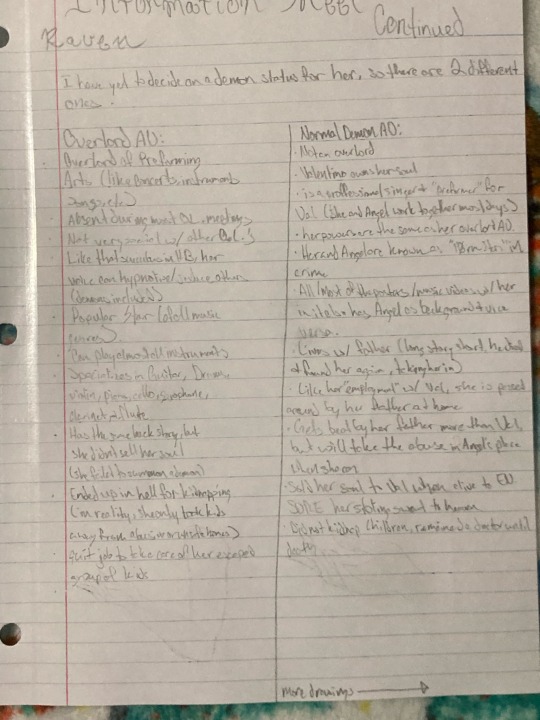 Information Sheet
Continued
Raven
I have yet to decide on a demon status for her, so there are 2 different
ones.
Overlord AU:
· Overlord of Proforming
Arts (like concerts, instruments
songs, etc)
· Absent during most O.L. meetings
· Not very social w/ other O.L.'s
· Like that in her
voice can hypnotive/induce others
(demons included)
· Popular Star (of all music
genres)
· Can play almost all instruments
Specializes in Guitar, Drums,
violin, piano, cello,
clarinet, & flute
· Has the same back story, but
she didn't sell her soul
(she failed to summon a demon)
· Ended up in hell for kidnapping
(in reality, she only took kids
away from abusive homes)
· quit job to take care of her escaped
group of kids
Normal Demon AU:
· Not an overlord
· Valentino owns her soul
· is a proffessional singer + "preformer" for
Val (she and Angel work together most days)
· her powers are the same as her overlord AU.
· Her and Angel are known as in
crime
· All/Most of the posters/music videos w/ her
in it also has Angel as background & vice
versa.
· Lives w/ father (long story short, he died
& found her again, taking her in)
· Like her "employment" w/ Val, she is
around by her father at home
· Gets beat by her father more than Val,
but will take the abuse in Angel's place
when she can
· Sold her soul to Val when alive to
her sent to human
· Did not kidnap children, remained a doctor until
death
more drawings